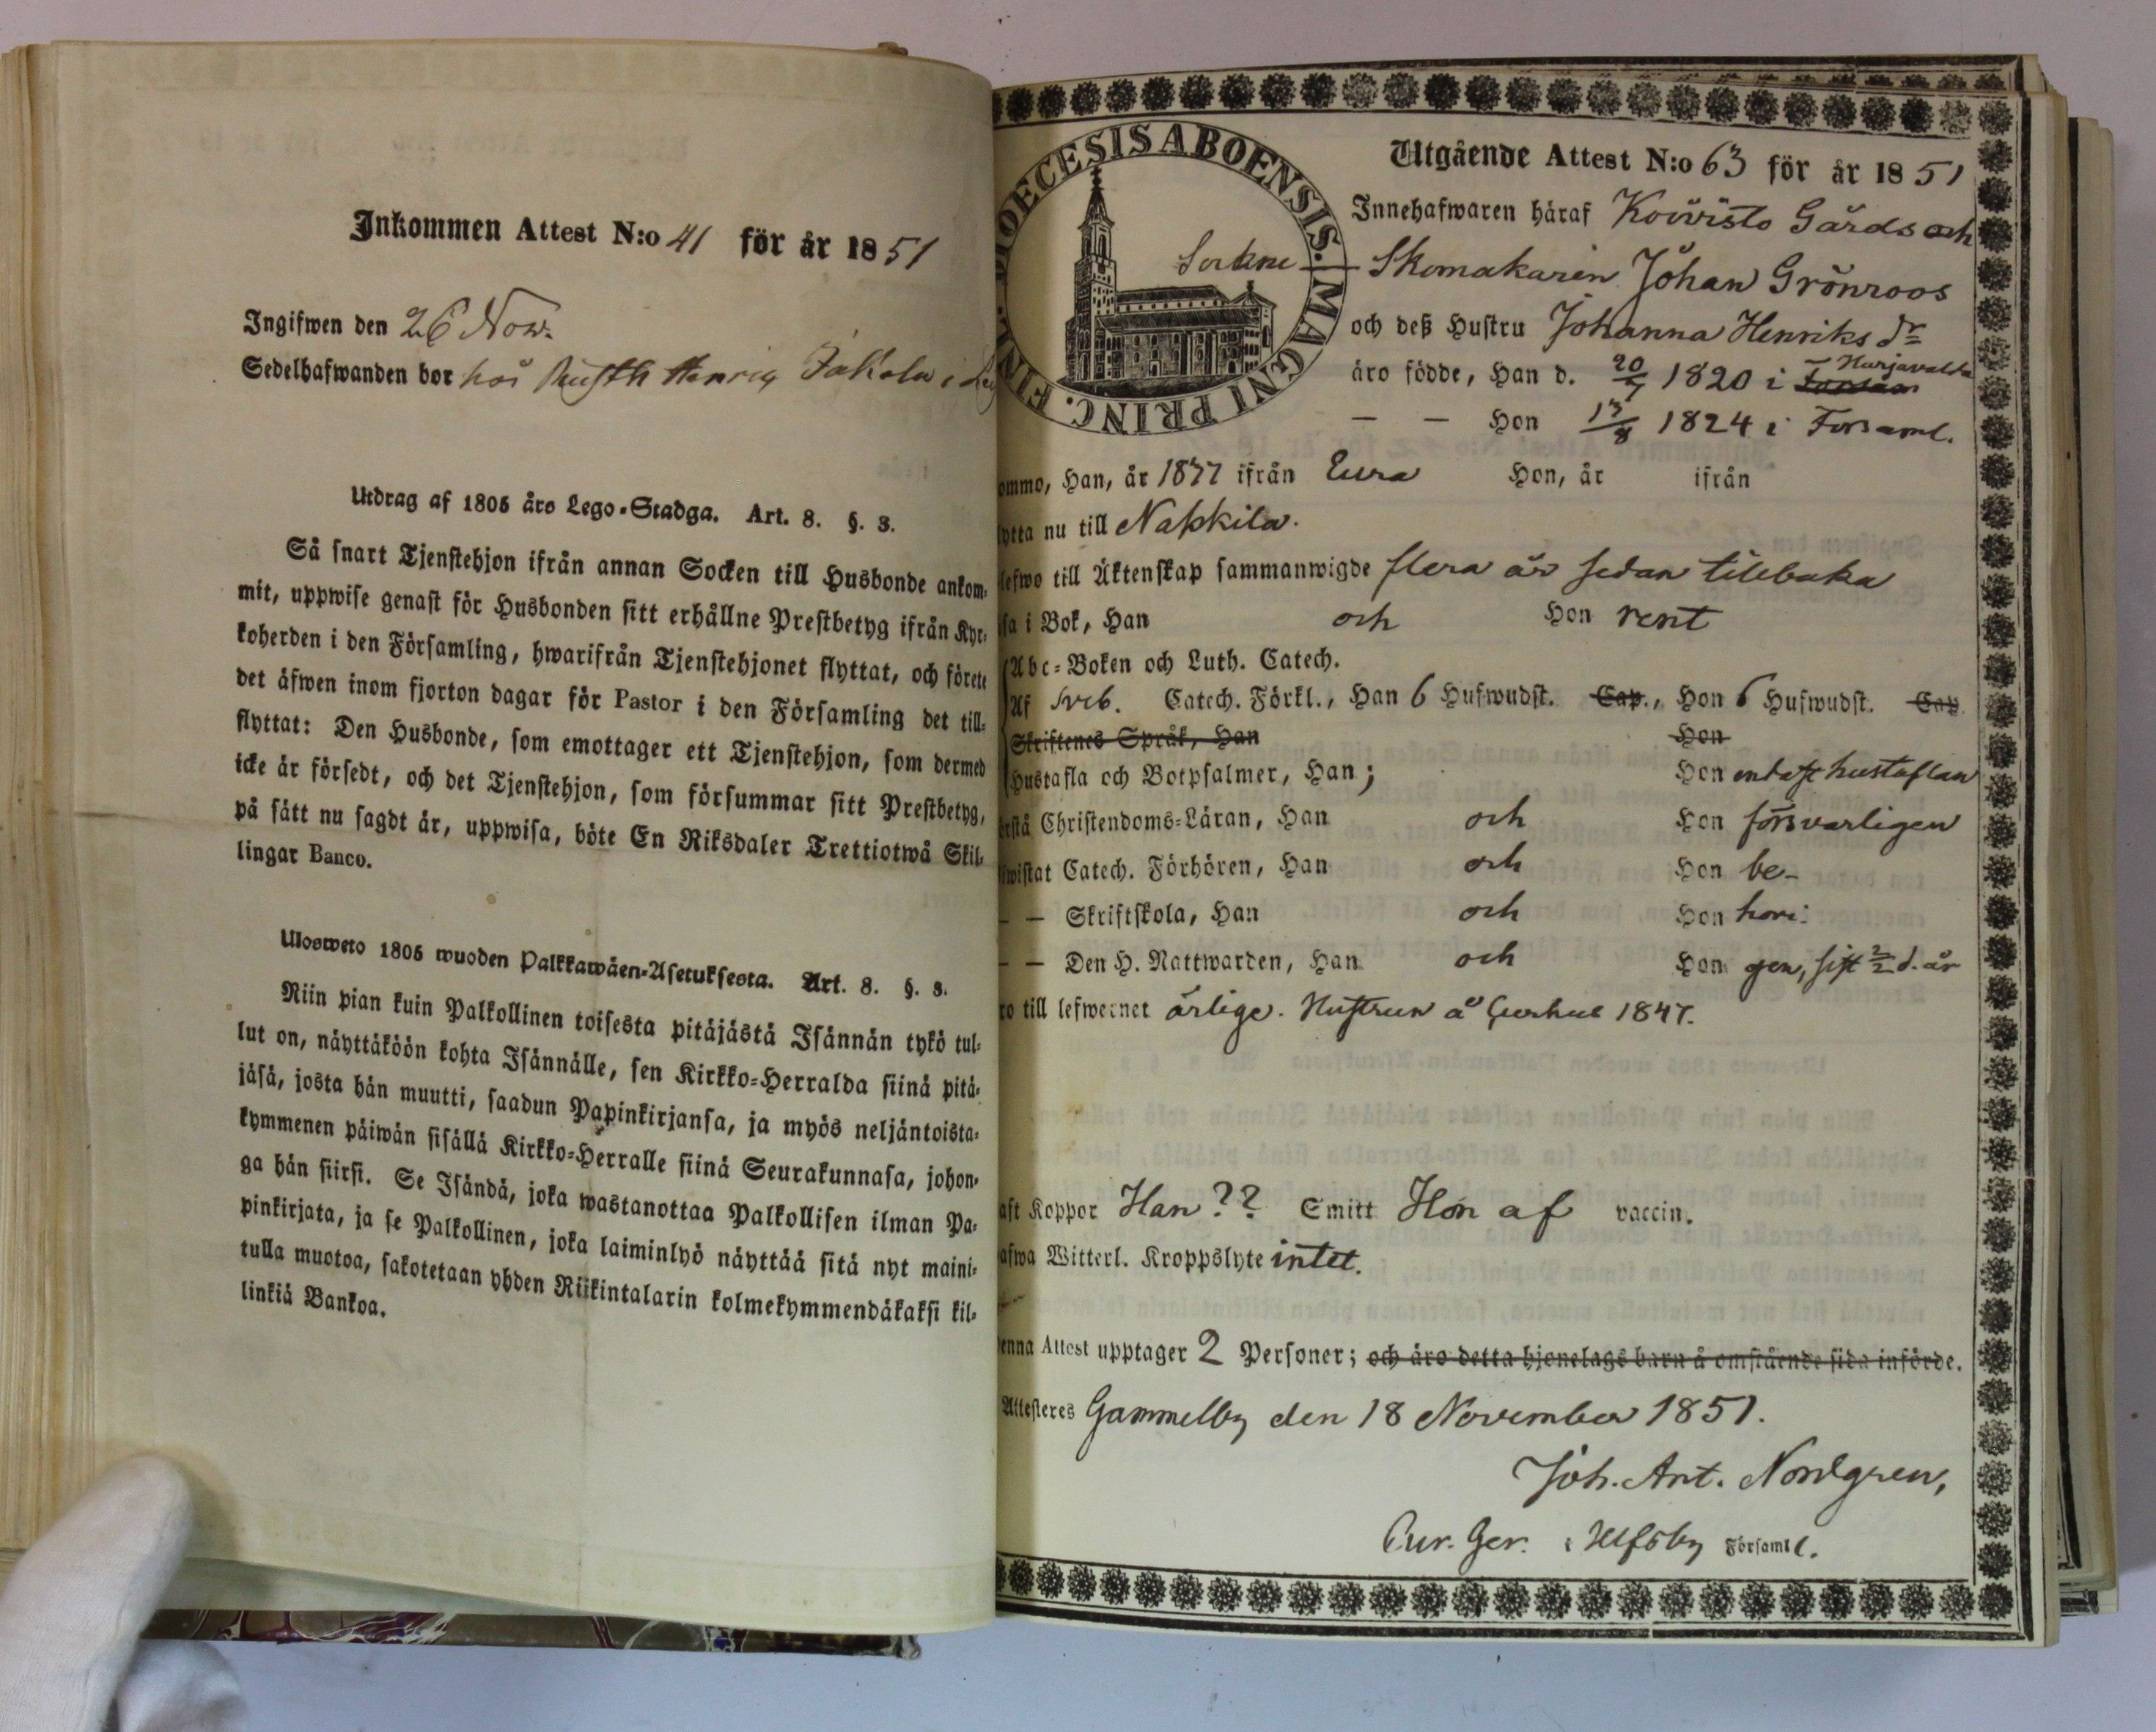 Inkommen Attest N:o 41 för år 1851
Ingifwen den 26 Now.
Sedelhafwanden bor hos Rusth Henric Jakola i
Utdrag af 1805 års Lego-Stadga. Art. 8. §. 3.
Så snart Tjenstehjon ifrån annan Socken till Husbonde ankom-
mit, uppwise genast för Husbonden sitt erhållne Prestbetyg ifrån Kyr-
koherden i den Församling, hwarifrån Tjenstehjonet flyttat, och förete
det äfwen inom fjorton dagar för Pastor i den Församling det till-
flyttat: Den Husbonde, som emottager ett Tjenstehjon, som dermed
icke är försedt, och det Tjenstehjon, som försummar sitt Prestbetyg,
på sätt nu sagdt är, uppwisa, böte En Riksdaler Trettiotwå Skil-
lingar Banco.
Ulosweto 1805 wuoden Palkkawäen-Asetuksesta. Art. 8. §. 3.
Niin pian kuin Palkollinen toisesta pitäjästä Isännän tykö tul-
lut on, näyttäköön kohta Isännälle, sen Kirkko-Herralda siinä pitä-
jäsä, josta hän muutti, saadun Papinkirjansa, ja myös neljäntoista-
kymmenen päiwän sisällä Kirkko-Herralle siinä Seurakunnasa, johon-
ga hän siirsi. Se Isändä, joka wastanottaa Palkollisen ilman Pa-
pinkirjata, ja se Palkollinen, joka laiminlyö näyttää sitä nyt maini-
tulla muotoa, sakotetaan yhden Riikintalarin kolmekymmendäkaksi kil-
linkiä Bankoa.
DIOECESIS ABOENSIS. MAGNI PRINC. FINL.
Utgående Attest N:o 63 för år 1851
Innehafwaren häraf Koivisto Gårds och
Sockne Skomakaren Johan Grönroos
och deß Hustru Johanna Henriks dr
äro födde, Han d. 20/7 1820 i Harjavalda
— — Hon 13/8 1824 i Församl.
ommo, Han, år 1837 ifrån Eura Hon, år ifrån
ytta nu till Nakkila.
lefwo till Äktenskap sammanwigde flera år sedan tillbaka
sa i Bok, Han och Hon rent
Abc-Boken och Luth. Catech.
Af Sveb. Catech. Förkl., Han 6 Hufwudst. Cap., Hon 6 Hufwudst. Cap
Skriftenes Språk, Han Hon
Hustafla och Botpsalmer, Han; Hon endast hustaflan
rstå Christendoms-Läran, Han och Hon försvarligen
wistat Catech. Förhören, Han och Hon be-
— — Skriftskola, Han och Hon hori-
— — Den H. Nattwarden, Han och Hon gen, sist d. år
ro till lefwernet ärlige. Hustrun å 1847.
aft Koppor Han ?? Emitt Hon af vaccin.
afwa Witterl. Kroppslyte intet.
enna Attest upptager 2 Personer; och äro detta hjonelags barn å omstående sida införde.
Attesteres Gammelby den 18 November 1851.
Joh. Ant. Nordgren,
Cur. Ger. i Ulfsby Församl.